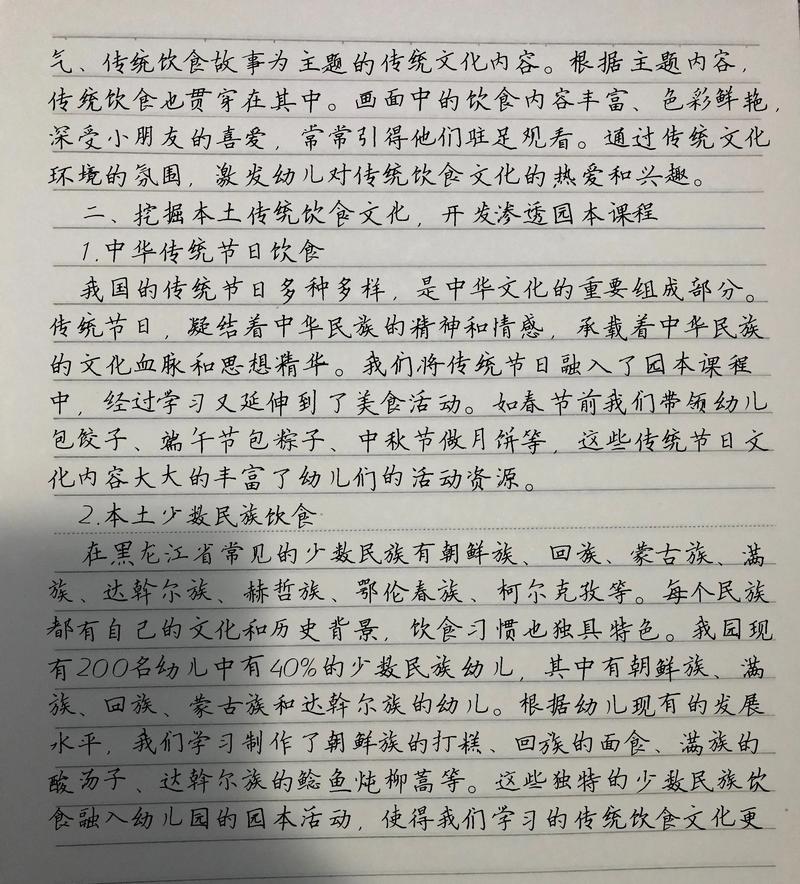 气、传统饮食故事为主题的传统文化内容。根据主题内容，
传统饮食也贯穿在其中。画面中的饮食内容丰富、色彩鲜艳，
深受小朋友的喜爱，常常引得他们驻足观看。通过传统文化
环境的氛围，激发幼儿对传统饮食文化的热爱和兴趣。
二、挖掘本土传统饮食文化，开发渗透园本课程
1.中华传统节日饮食
我国的传统节日多种多样，是中华文化的重要组成部分。
传统节日，凝结着中华民族的精神和情感，承载着中华民族
的文化血脉和思想精华。我们将传统节日融入了园本课程
中，经过学习又延伸到了美食活动。如春节前我们带领幼儿
包饺子、端午节包粽子、中秋节做月饼等，这些传统节日文
化内容大大的丰富了幼儿们的活动资源。
2.本土少数民族饮食
在黑龙江省常见的少数民族有朝鲜族、回族、蒙古族、满
族、达斡尔族、赫哲族、鄂伦春族、柯尔克孜等。每个民族
都有自己的文化和历史背景，饮食习惯也独具特色。我园现
有200名幼儿中有40%的少数民族幼儿，其中有朝鲜族、满
族、回族、蒙古族和达斡尔族的幼儿。根据幼儿现有的发展
水平，我们学习制作了朝鲜族的打糕、回族的面食、满族的
酸汤子、达斡尔族的鲶鱼炖柳蒿等。这些独特的少数民族饮
食融入幼儿园的园本活动，使得我们学习的传统饮食文化更